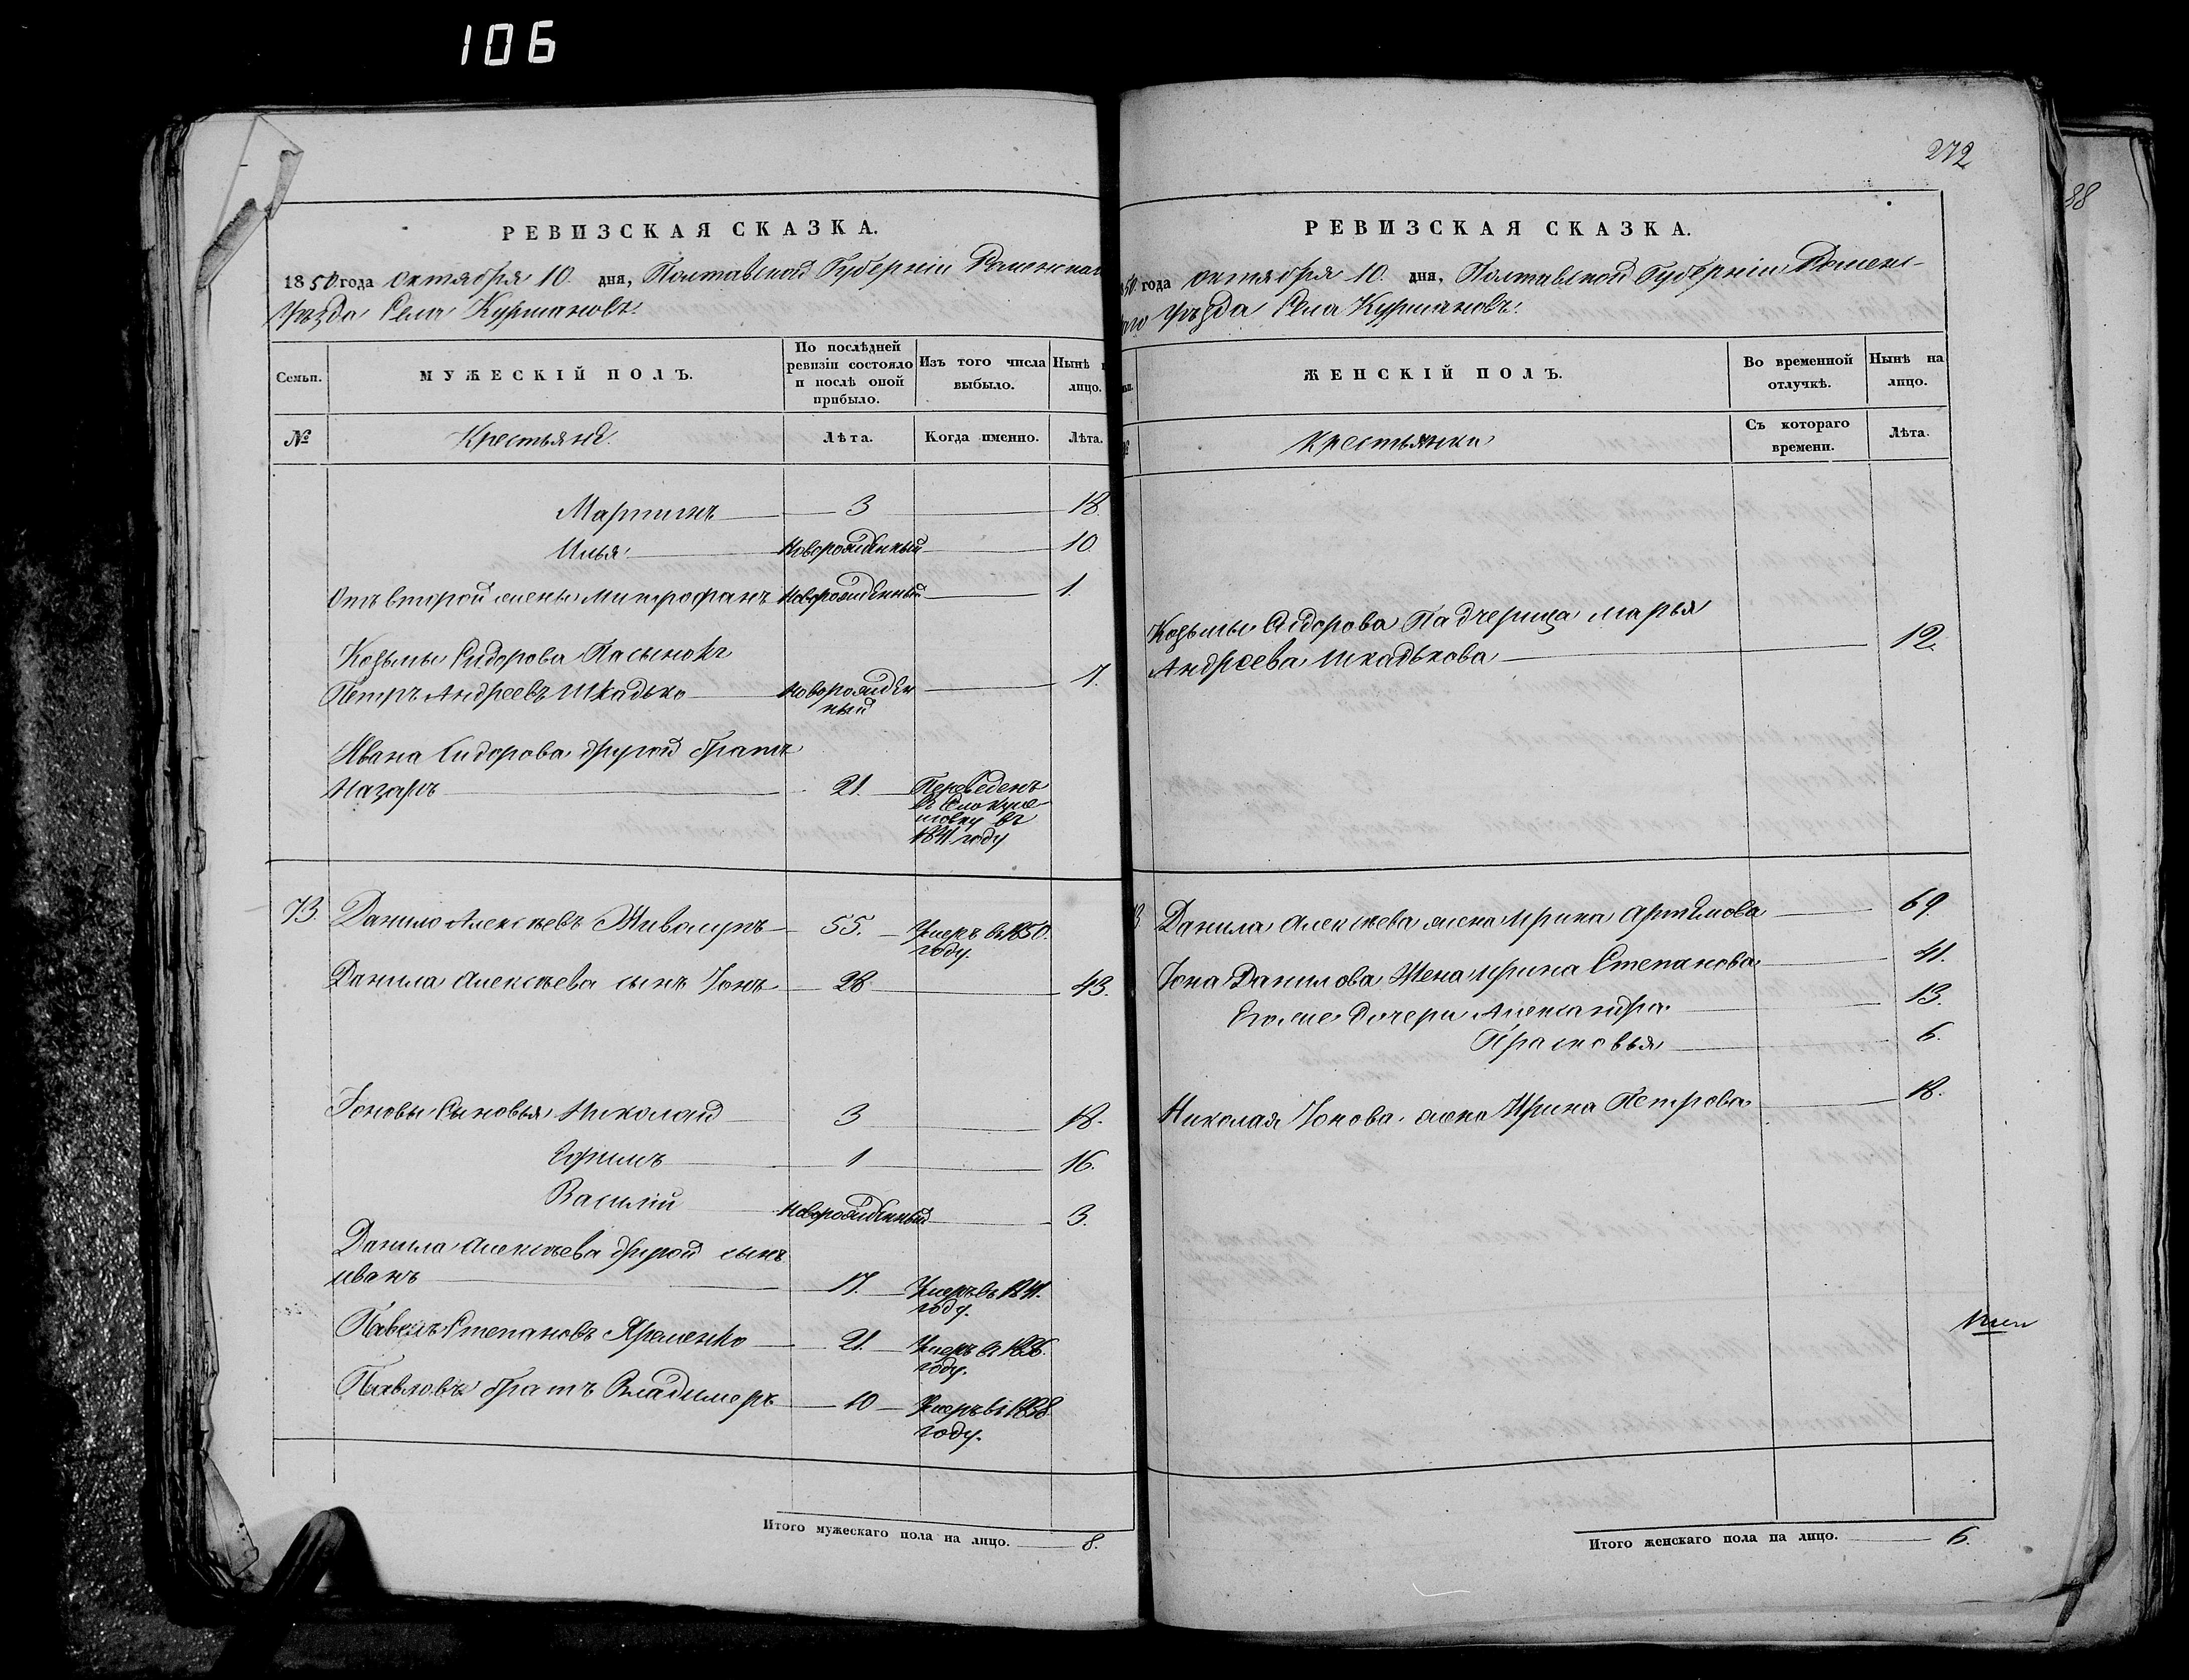 106
РЕВИЗСКАЯ СКАЗКА.
1850 года Октября 10. дня, Полтавской Губерніи Роменскаго
Уѣзда Села Курмановъ.
Семьи.
МУЖЕСКІЙ ПОЛЪ.
По послѣдней
ревизіи состояло
и послѣ оной
прибыло.
Изъ того числа
выбыло.
Нынѣ н
лицо.
№
Крестьяне.
Лѣта.
Когда именно.
Лѣта.
Мартинъ 3 18.
Илья новорожденный 10.
Отъ второй жены Митрофанъ новорожденный 1.
Козьмы Сидорова Пасынокъ
Петръ Андреевъ Шкадько новорожден 7.
ный
Ивана Сидорова другой братъ
Назаръ 21. Переведенъ
въ
въ
1841 году
73. Данило Алексѣевъ Живолупъ 55. Умеръ въ 1850.
году.
Данила Алексѣева сынъ Іонъ 28 43.
Іоновы Сыновья Николай 3 18.
Ефимъ 1 16.
Василій новорожденный 3.
Данила Алексѣева другой сынъ
иванъ 17. Умеръ въ 1841.
году.
Павелъ Степановъ Яременко 21. Умеръ въ 1836.
году.
Павловъ братъ Владимеръ 10 Умеръ въ 1838
году.
Итого мужескаго пола на лицо. 8.
272
88
РЕВИЗСКАЯ СКАЗКА.
50. года Октября 10. дня, Полтавской Губерніи Роменс-
каго Уѣзда Села Курмановъ.
ЖЕНСКІЙ ПОЛЪ.
Во временной
отлучкѣ.
Нынѣ на
лицо.
Крестьянки
Съ котораго
времени.
Лѣта.
Козьмы Сидорова Падчерица марья
Андреева Шкадькова 12.
Данила Алексѣева жена Ирина Артемова 69.
Іона Данилова Жена Ирина Степанова 41.
Его же дочери Александра 13.
Прасковья 6.
Николая Іонова жена Ирина Петрова 18.
Итого женскаго пола на лицо. 6.